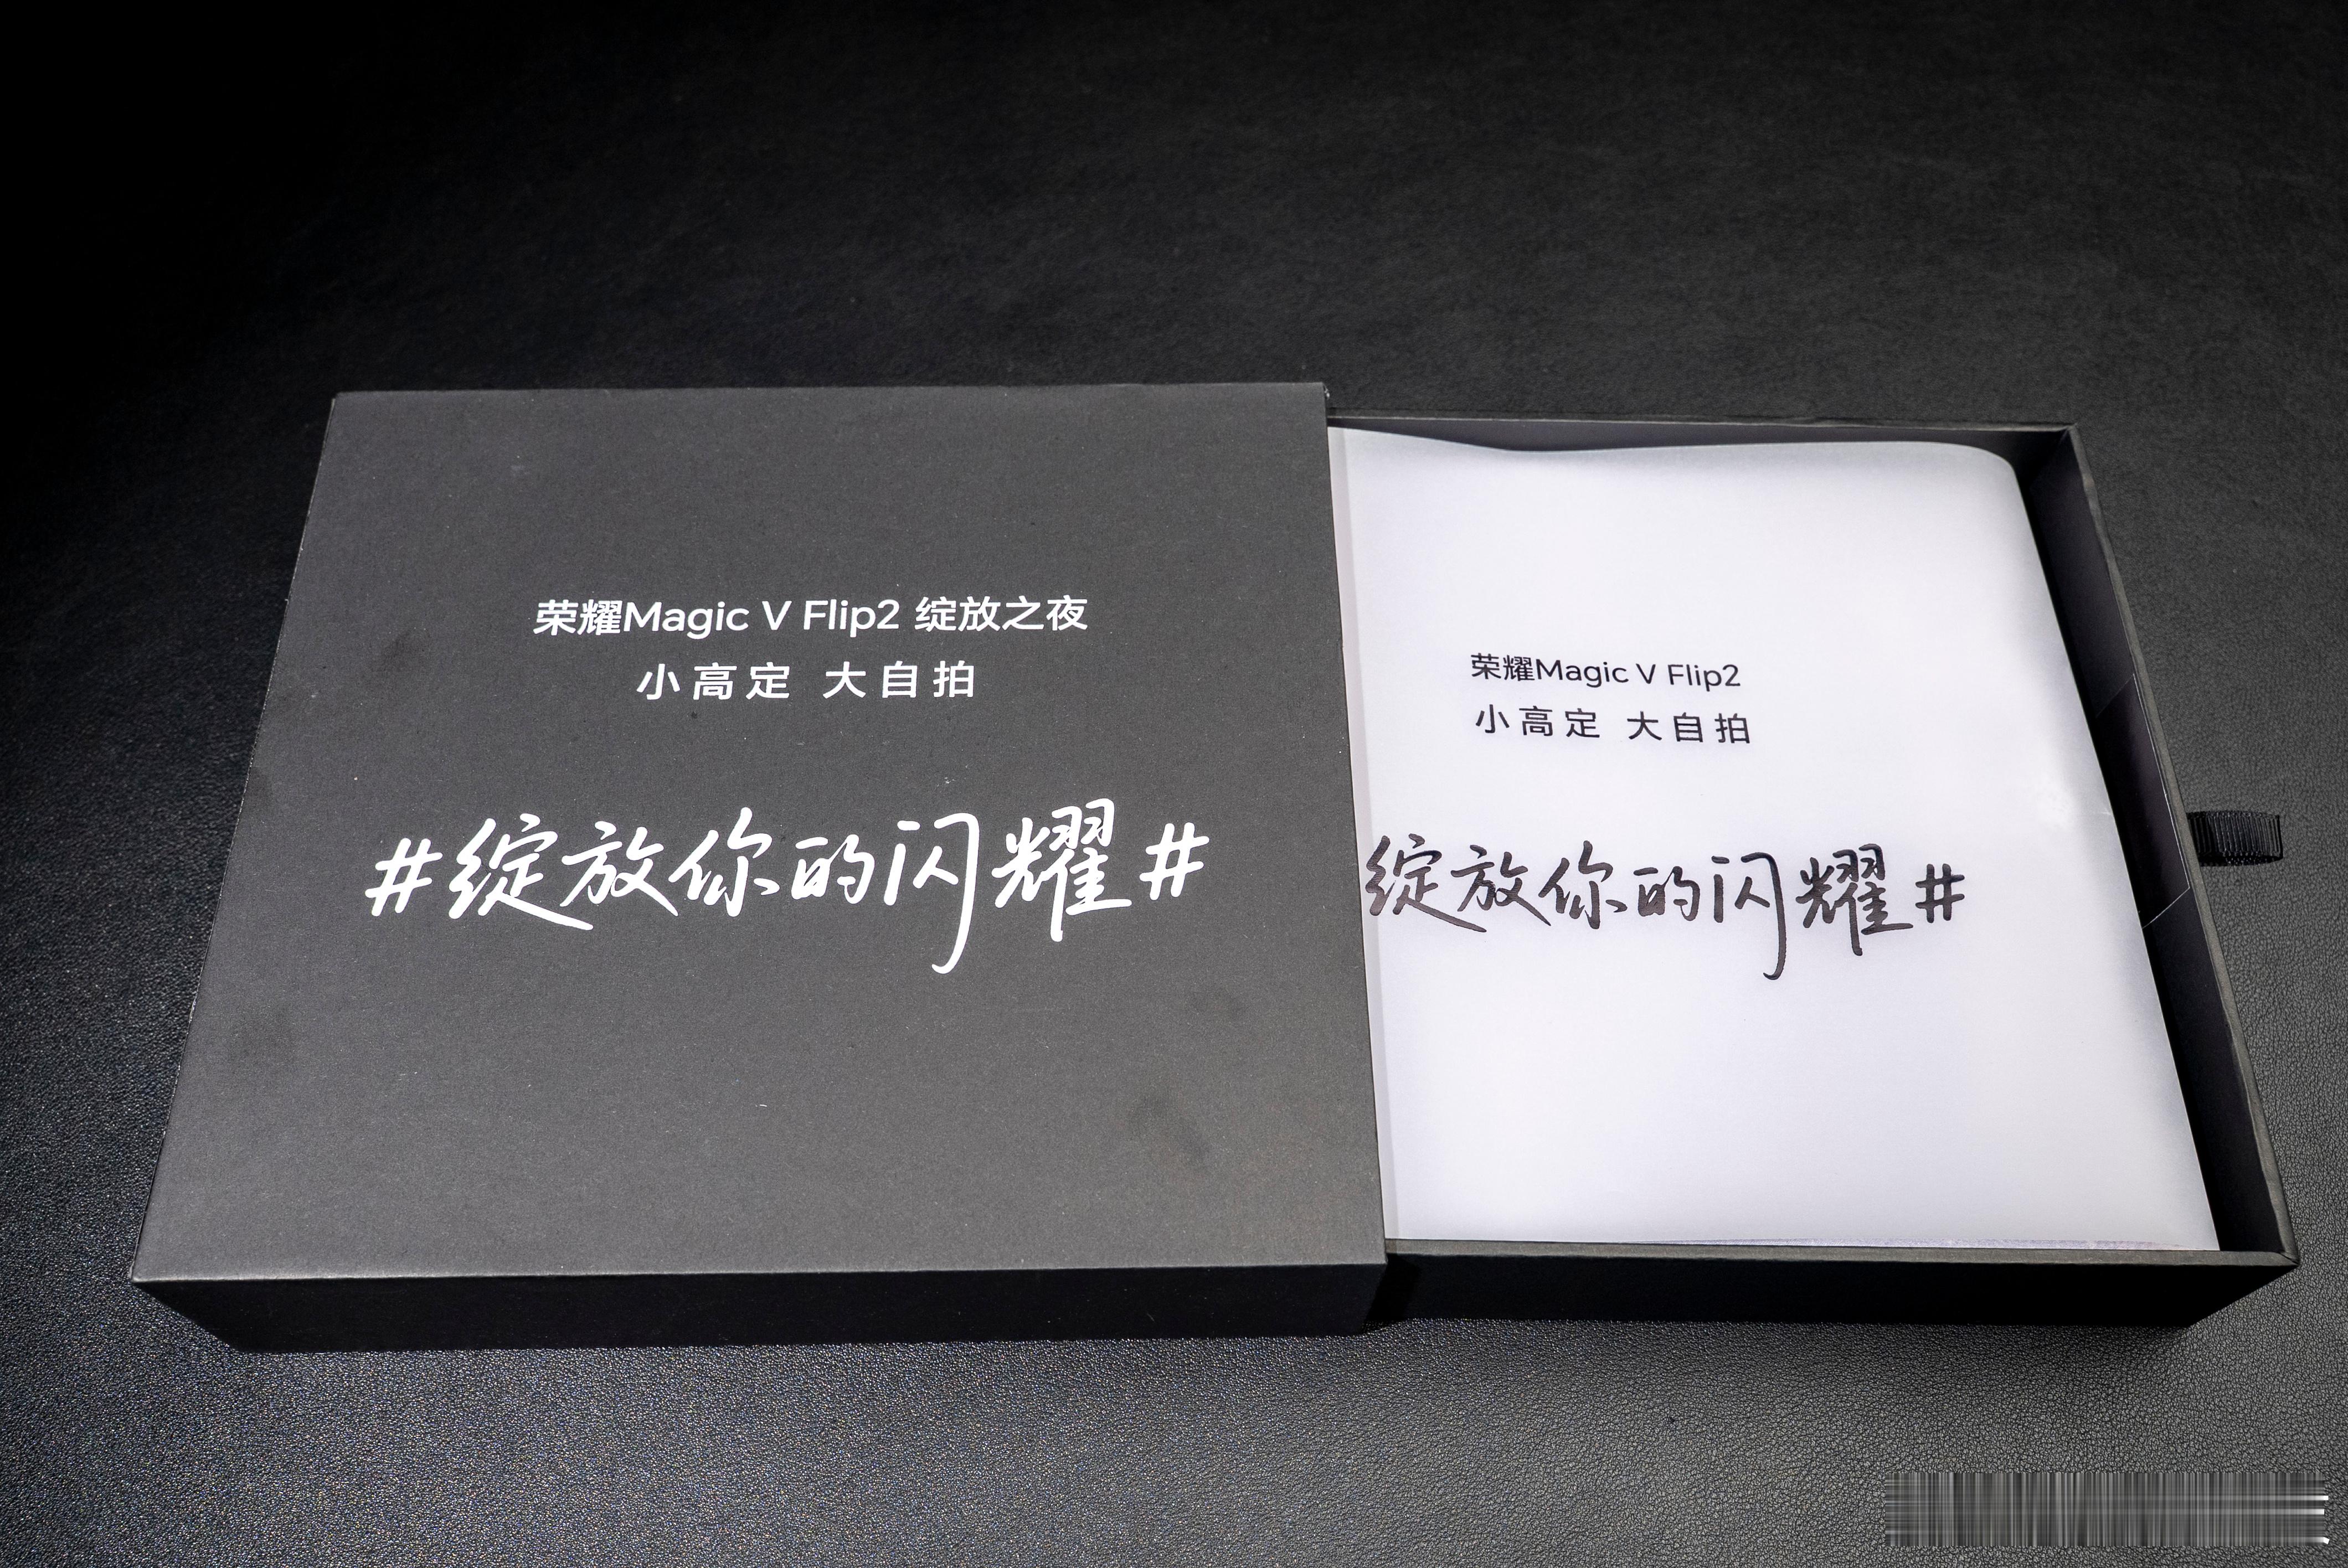 荣耀Magic V Flip2 绽放之夜
小高定 大自拍
#绽放你的闪耀#
荣耀Magic V Flip2
小高定 大自拍
绽放你的闪耀#